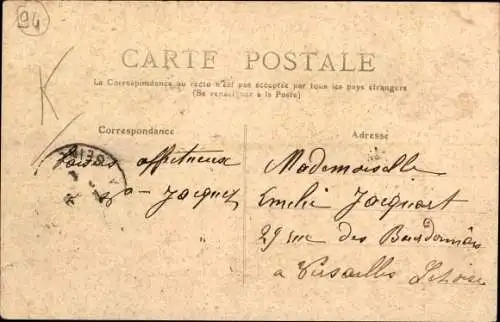 94
K
CARTE POSTALE
La Correspondance au recto n'est pas acceptée par tous les pays étrangers
(Se renseigner à la Poste)
Correspondance
Adresse
affectueux
Jacques
Mademoiselle
Emilie Jacquart
29 rue des Bourdonnais
à Versailles